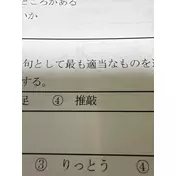 ところがある
いか
句として最も適当なものを
する。
足 ④ 推敲
③ りっとう ④